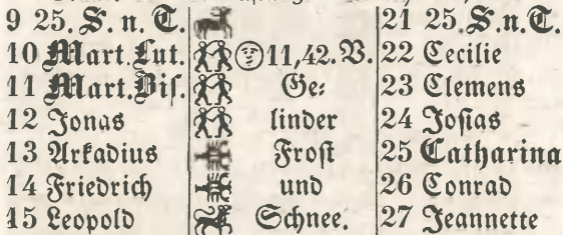 9 25. S. n. T. 21 25. S. n. T.
10 Mart. Lut. 11,42. V. 22 Cecilie
11 Mart. Bis. Ge= 23 Clemens
12 Jonas linder 24 Josias
13 Arkadius Frost 25 Catharina
14 Friedrich und 26 Conrad
15 Leopold Schnee. 27 Jeannette